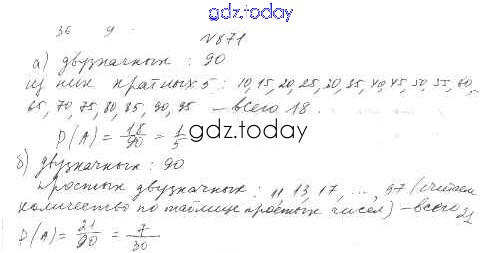 gdz.today
36 9
№871
а) двузначных : 90
из них кратных 5 : 10, 15, 20, 25, 30, 35, 40, 45, 50, 55, 60,
65, 70, 75, 80, 85, 90, 95 – всего 18.
P(A) = 18/90 = 1/5
gdz.today
б) двузначных : 90
Простых двузначных : 11, 13, 17, ..., 97 (считаем
количество по таблице простых чисел) – всего 21
P(A) = 21/90 = 7/30